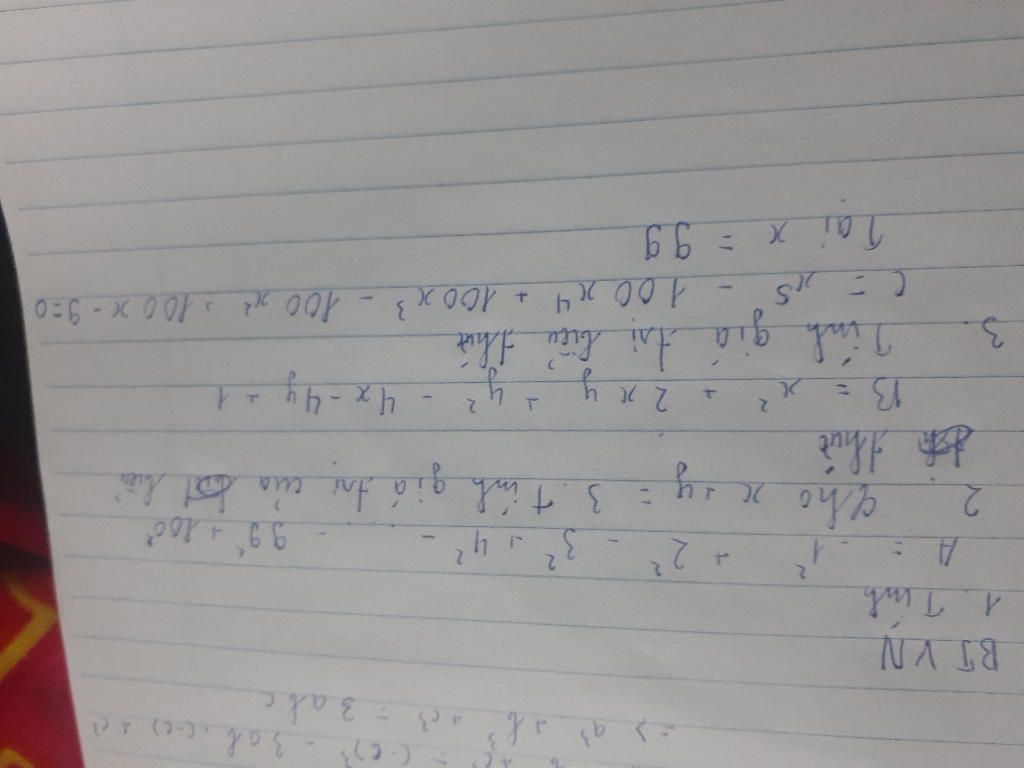 + c³ = (-c)³ - 3ab.(-c) + c³
=> a³ + b³ + c³ = 3abc
BTVN
1. Tính
A = -1² + 2² - 3² + 4² - ... - 99² + 100²
2. Cho x + y = 3. Tính giá trị của biểu
thức
B = x² + 2xy + y² - 4x - 4y + 1
3. Tính giá trị biểu thức
C = x⁵ - 100x⁴ + 100x³ - 100x² + 100x - 9 = 0
Tại x = 99